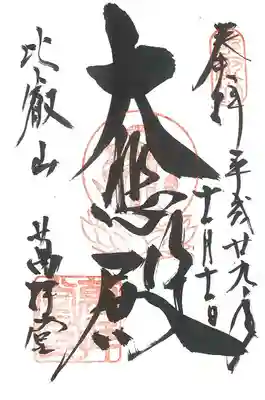 奉拝 平成廿九年
十一月十一日
大悲殿
比叡山 萬拝堂